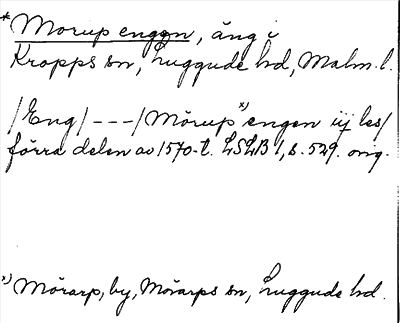 * Morup enggn, äng i
Kropps sn, Luggude hd, Malm. l.
/Eng/ --- /Mörup x) engen iij les/
förra delen av 1570-t. LSLB 1, s. 529. orig.
x) Mörarp, by, Mörarps sn, Luggude hd.